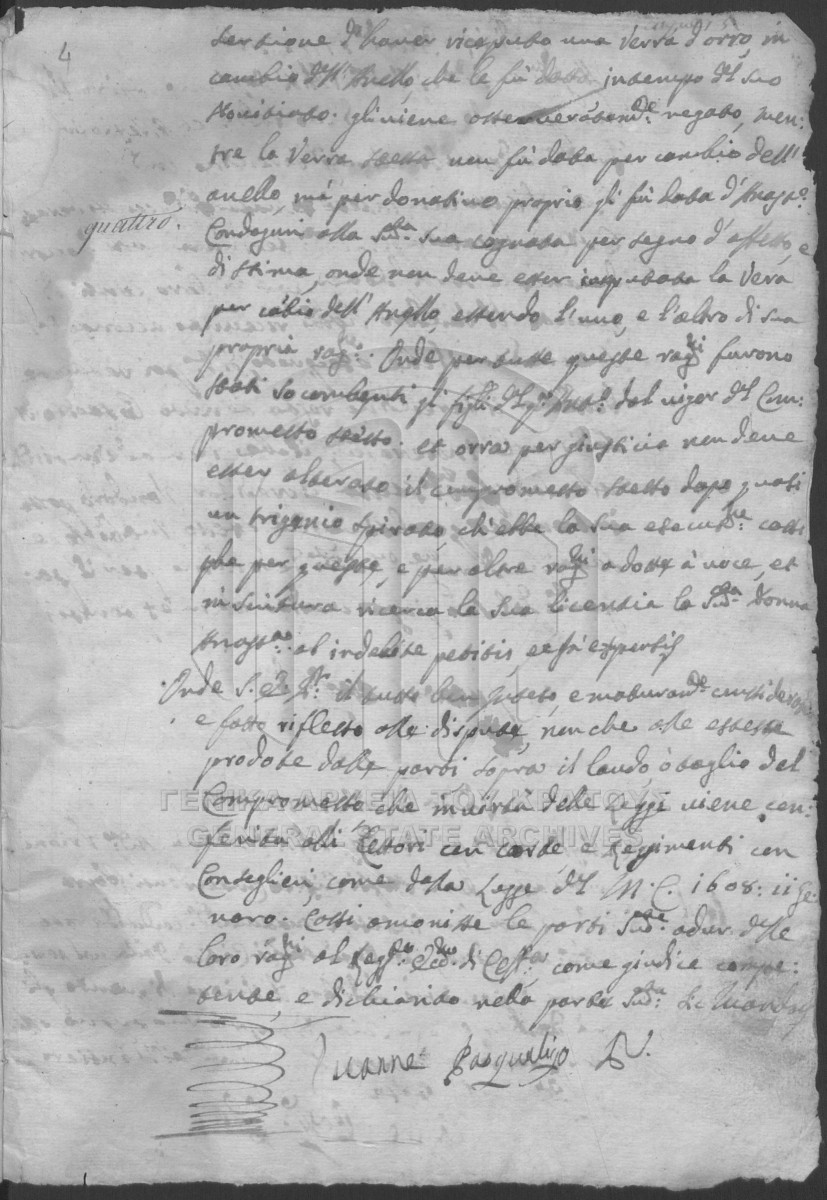 4
sertione d'haver riceputo una Verra d'orro, in
cambio dell'Anello, che le fù dato in tempo del suo
Noviziato. gli viene negato, men:
tre la Verra stessa non fù data per cambio dell'
anello mà per donativo proprio gli fù data d'Anast.ª
quattro.
Condoguri alla sud.ta sua cognata per segno d'affetto, e
di stima, onde non deve esser imputata la Vera
per cābio dell'Anello, essendo l'uno, e l'altro di sua
propria rag:. Onde per tutte queste rag.ni furono
stati socombenti gli figli del q. dal vigor del Com:
promesso stesso. et orra per giusticia non deve
esser alterato il compromesso stesso dapo quasi
un trigenio spirato, ch'ebbe la sua essecut.ne cossi
che per queste, e per altre rag.ni adotte à voce, et
in scritura ricerca la sua licentia la sud.ta Donna
ab indebite petitis, et
Onde S. E. il tutto ben inteso, e maturam.te considerato
e fatto riflesso alle dispute, non che alle
prodote dalle parti sopra il laudo, ò taglio del
Compromesso che in virtù delle Leggi viene con:
ferita alli Rettori con corte e Regimenti con
Conseglieri, come dalla Legge del M. C. 1608: 11 Ge:
naro. Cossi amonisse le parti sud.te adur delle
loro rag.ni al Regg.to Ecc.mo di Ceff.a come giudice compe:
tente, e dichiarito nella parte sud.ta
ΓΕΝΙΚΑ ΑΡΧΕΙΑ ΤΟΥ ΚΡΑΤΟΥΣ
GENERAL STATE ARCHIVES
Pasqualigo